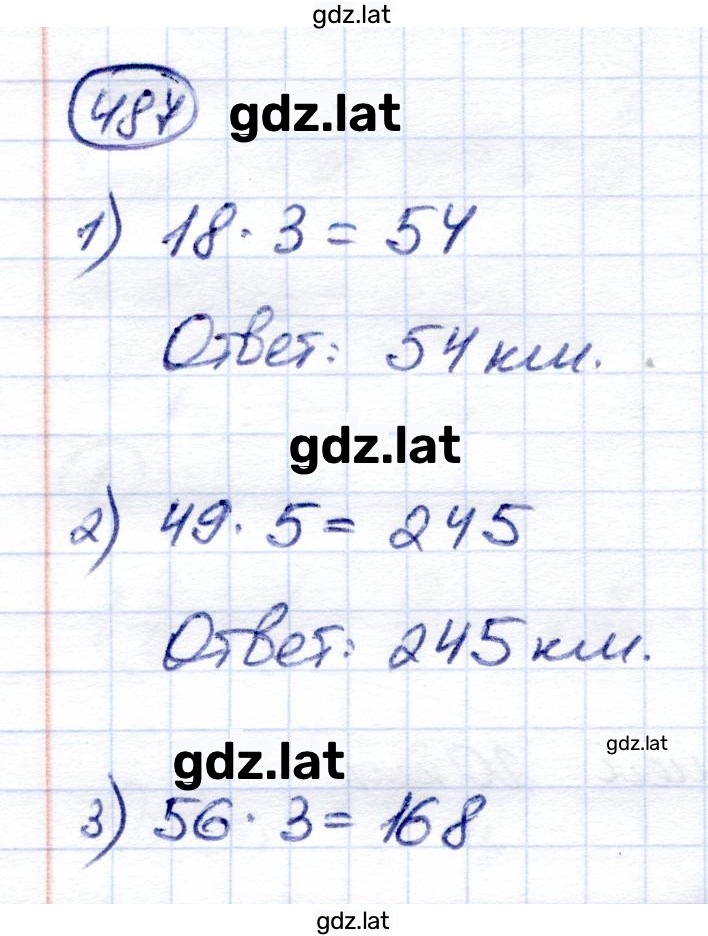 gdz.lat
487 gdz.lat
1) 18 · 3 = 54
Ответ: 54 км.
gdz.lat
2) 49 · 5 = 245
Ответ: 245 км.
gdz.lat
gdz.lat
3) 56 · 3 = 168
gdz.lat